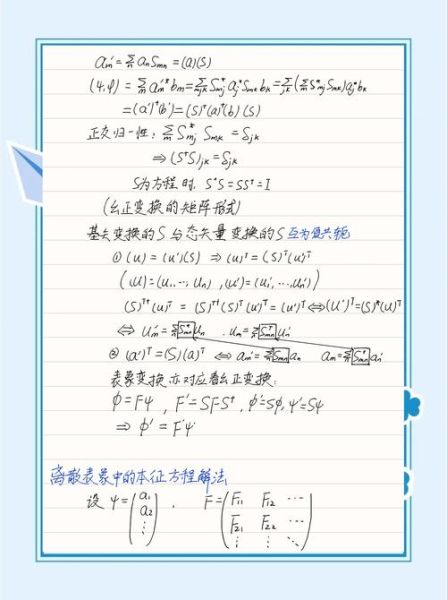 a'm = Σn an Smn = (a)(S)
(ψ,φ) = Σm a'm* bm = Σmjk S*mj a*j Smk bk = Σjk (Σm S*mj Smk) a*j bk
= (a')†(b') = (S)†(a)†(b)(S)
正交归一性: Σm S*mj Smk = δjk
⇒ (S†S)jk = δjk
S为方程时, S†S = SS† = I
(幺正变换的矩阵形式)
基矢变换的S与态矢量变换的S互为复共轭
① (u) = (u')(S) ⇒ (u)T = (S)T(u')T
((u) = (u1, ⋯, un), (u') = (u1', ⋯ un'))
(S)T†(u)T = (S)T†(S)T(u')T = (u')T ⇔ (u')T = (S)*(u)T
⇔ u'm = Σn S*mn un . um = Σn STmn u'n
② (a')T = (S)(a)T ⇔ am' = Σn Smn an am = Σn S*mn an'
表象变换亦对应着幺正变换:
φ = Fψ , F' = SFS†, φ' = Sφ, ψ' = Sψ
⇒ φ' = F'ψ'
离散表象中的本征方程解法
设 ψ = (a1 a2 ⋮) , F = (F11 F12 ⋯ F21 F22 ⋯ ⋮ ⋮ ⋱)